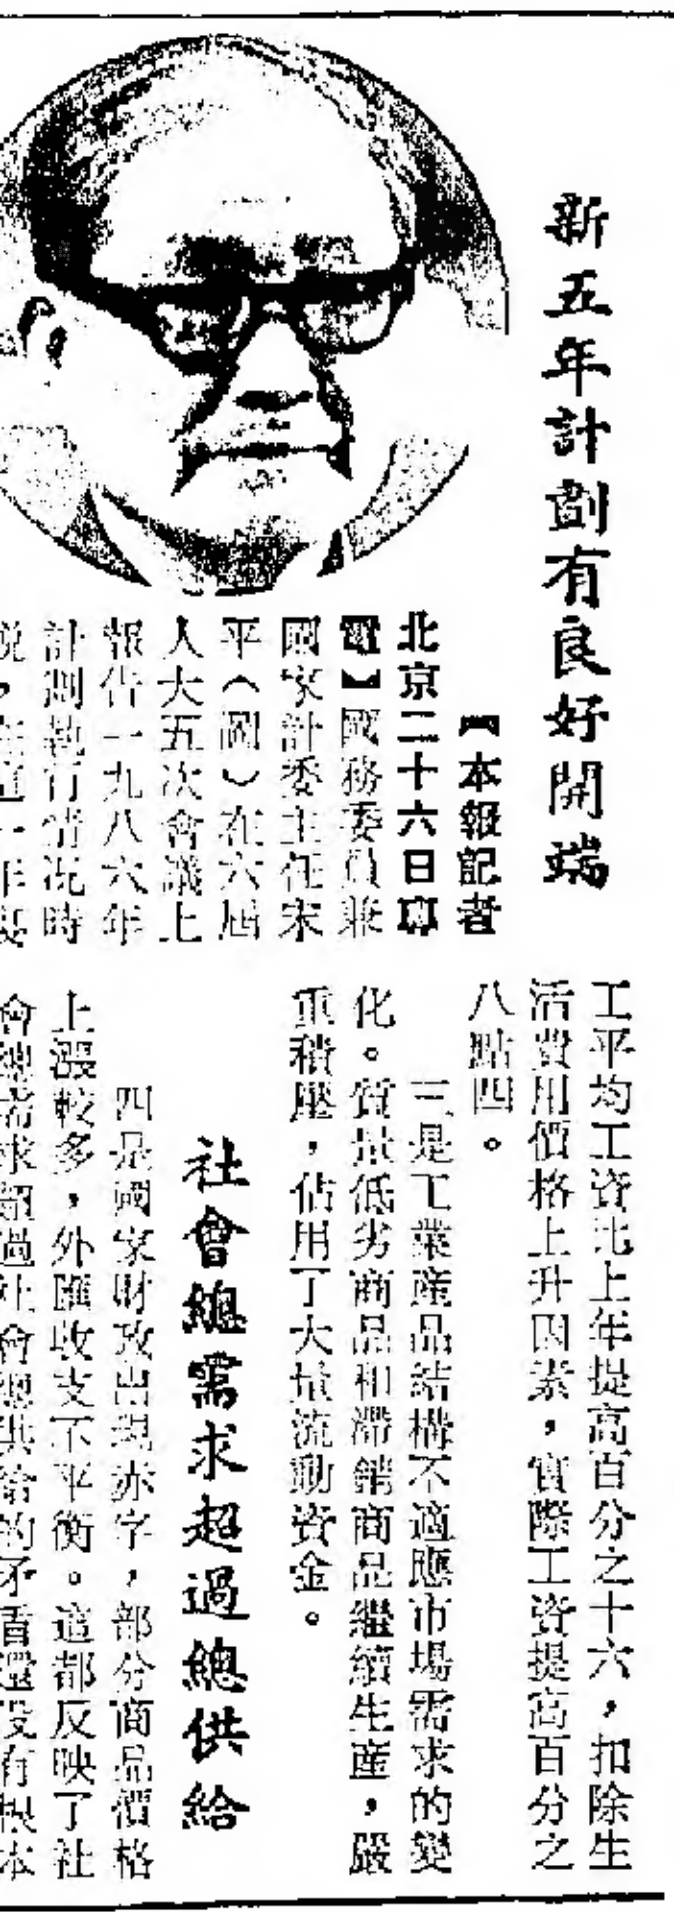 新五年計劃有良好開端
【本報記者
北京二十六日專
電】國務委員兼
國家計委主任宋
平（圖）在六屆
人大五次會議上
報告一九八六年
計劃執行情況時
說，在這一年要
工平均工資比上年提高百分之十六，扣除生
活費用價格上升因素，實際工資提高百分之
八點四。
三是工業產品結構不適應市場需求的變
化。質量低劣商品和滯銷商品繼續生產，嚴
重積壓，佔用了大量流動資金。
社會總需求超過總供給
四是國家財政出現赤字，部分商品價格
上漲較多，外匯收支不平衡。這都反映了社
會總需求超過社會總供給的矛盾還沒有根本